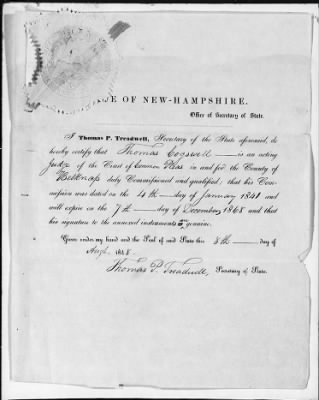 E OF NEW-HAMPSHIRE.
Office of Secretary of State.
I Thomas P. Treadwell, Secretary of the State aforesaid, do
hereby certify that Thomas Cogswell is an acting
Judge of the Court of Common Pleas in and for the County of
Belknap duly Commissioned and qualified; that his Com-
mission was dated on the 4th day of January 1841 and
will expire on the 7th day of December 1868 and that
his signature to the annexed instrument is genuine.
Given under my hand and the Seal of said State this 8th day of
Augt. 1848.
Thomas P. Treadwell, Secretary of State.